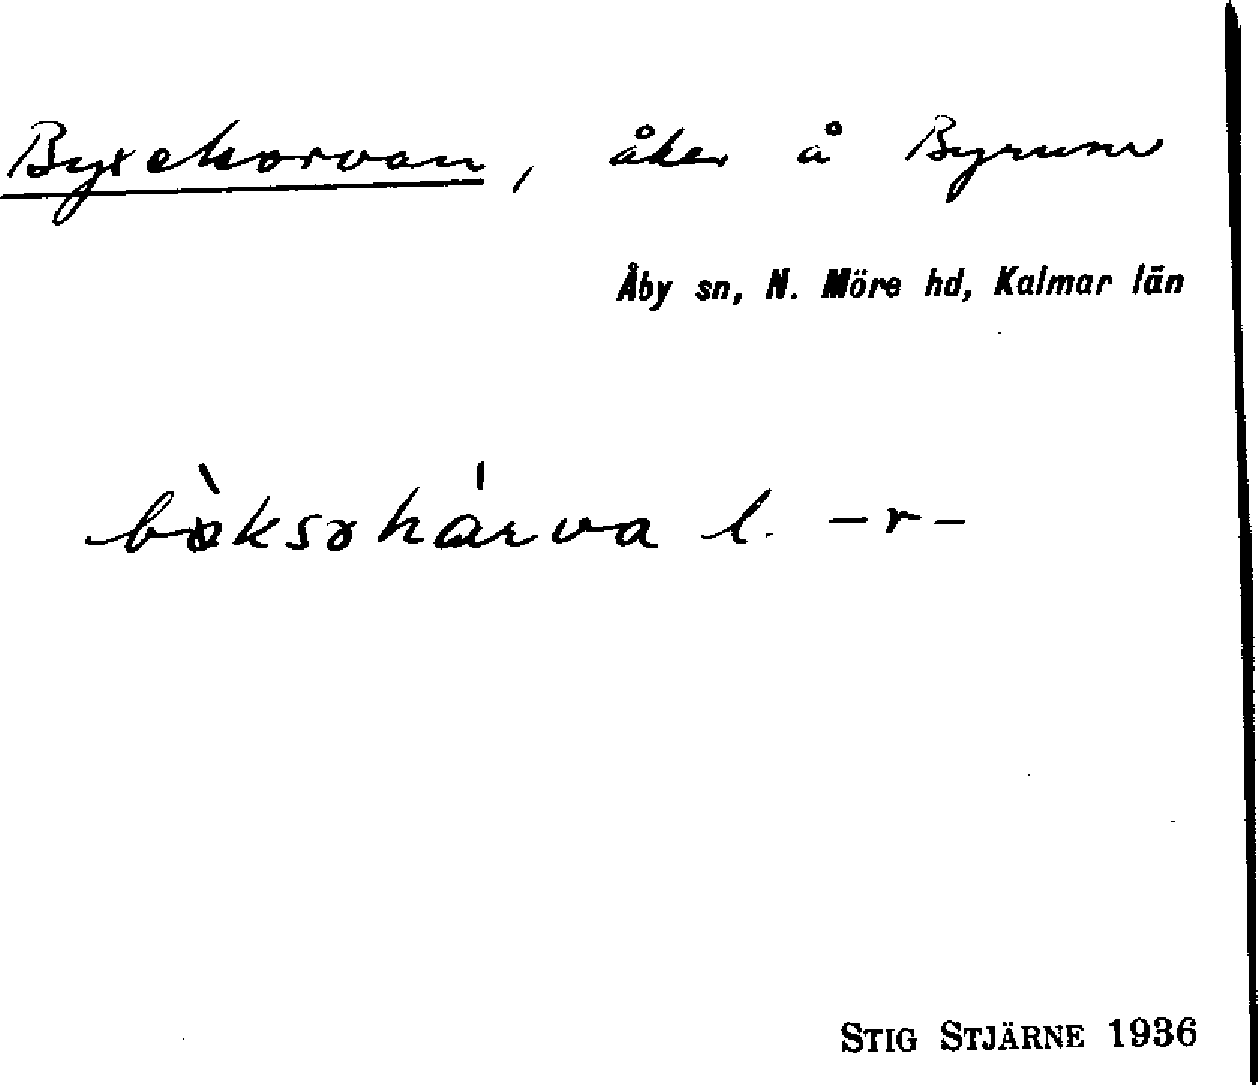 Byxehorvan, åker å Byrum
Åby sn, N. Möre hd, Kalmar län
l. -r-
STIG STJÄRNE 1936